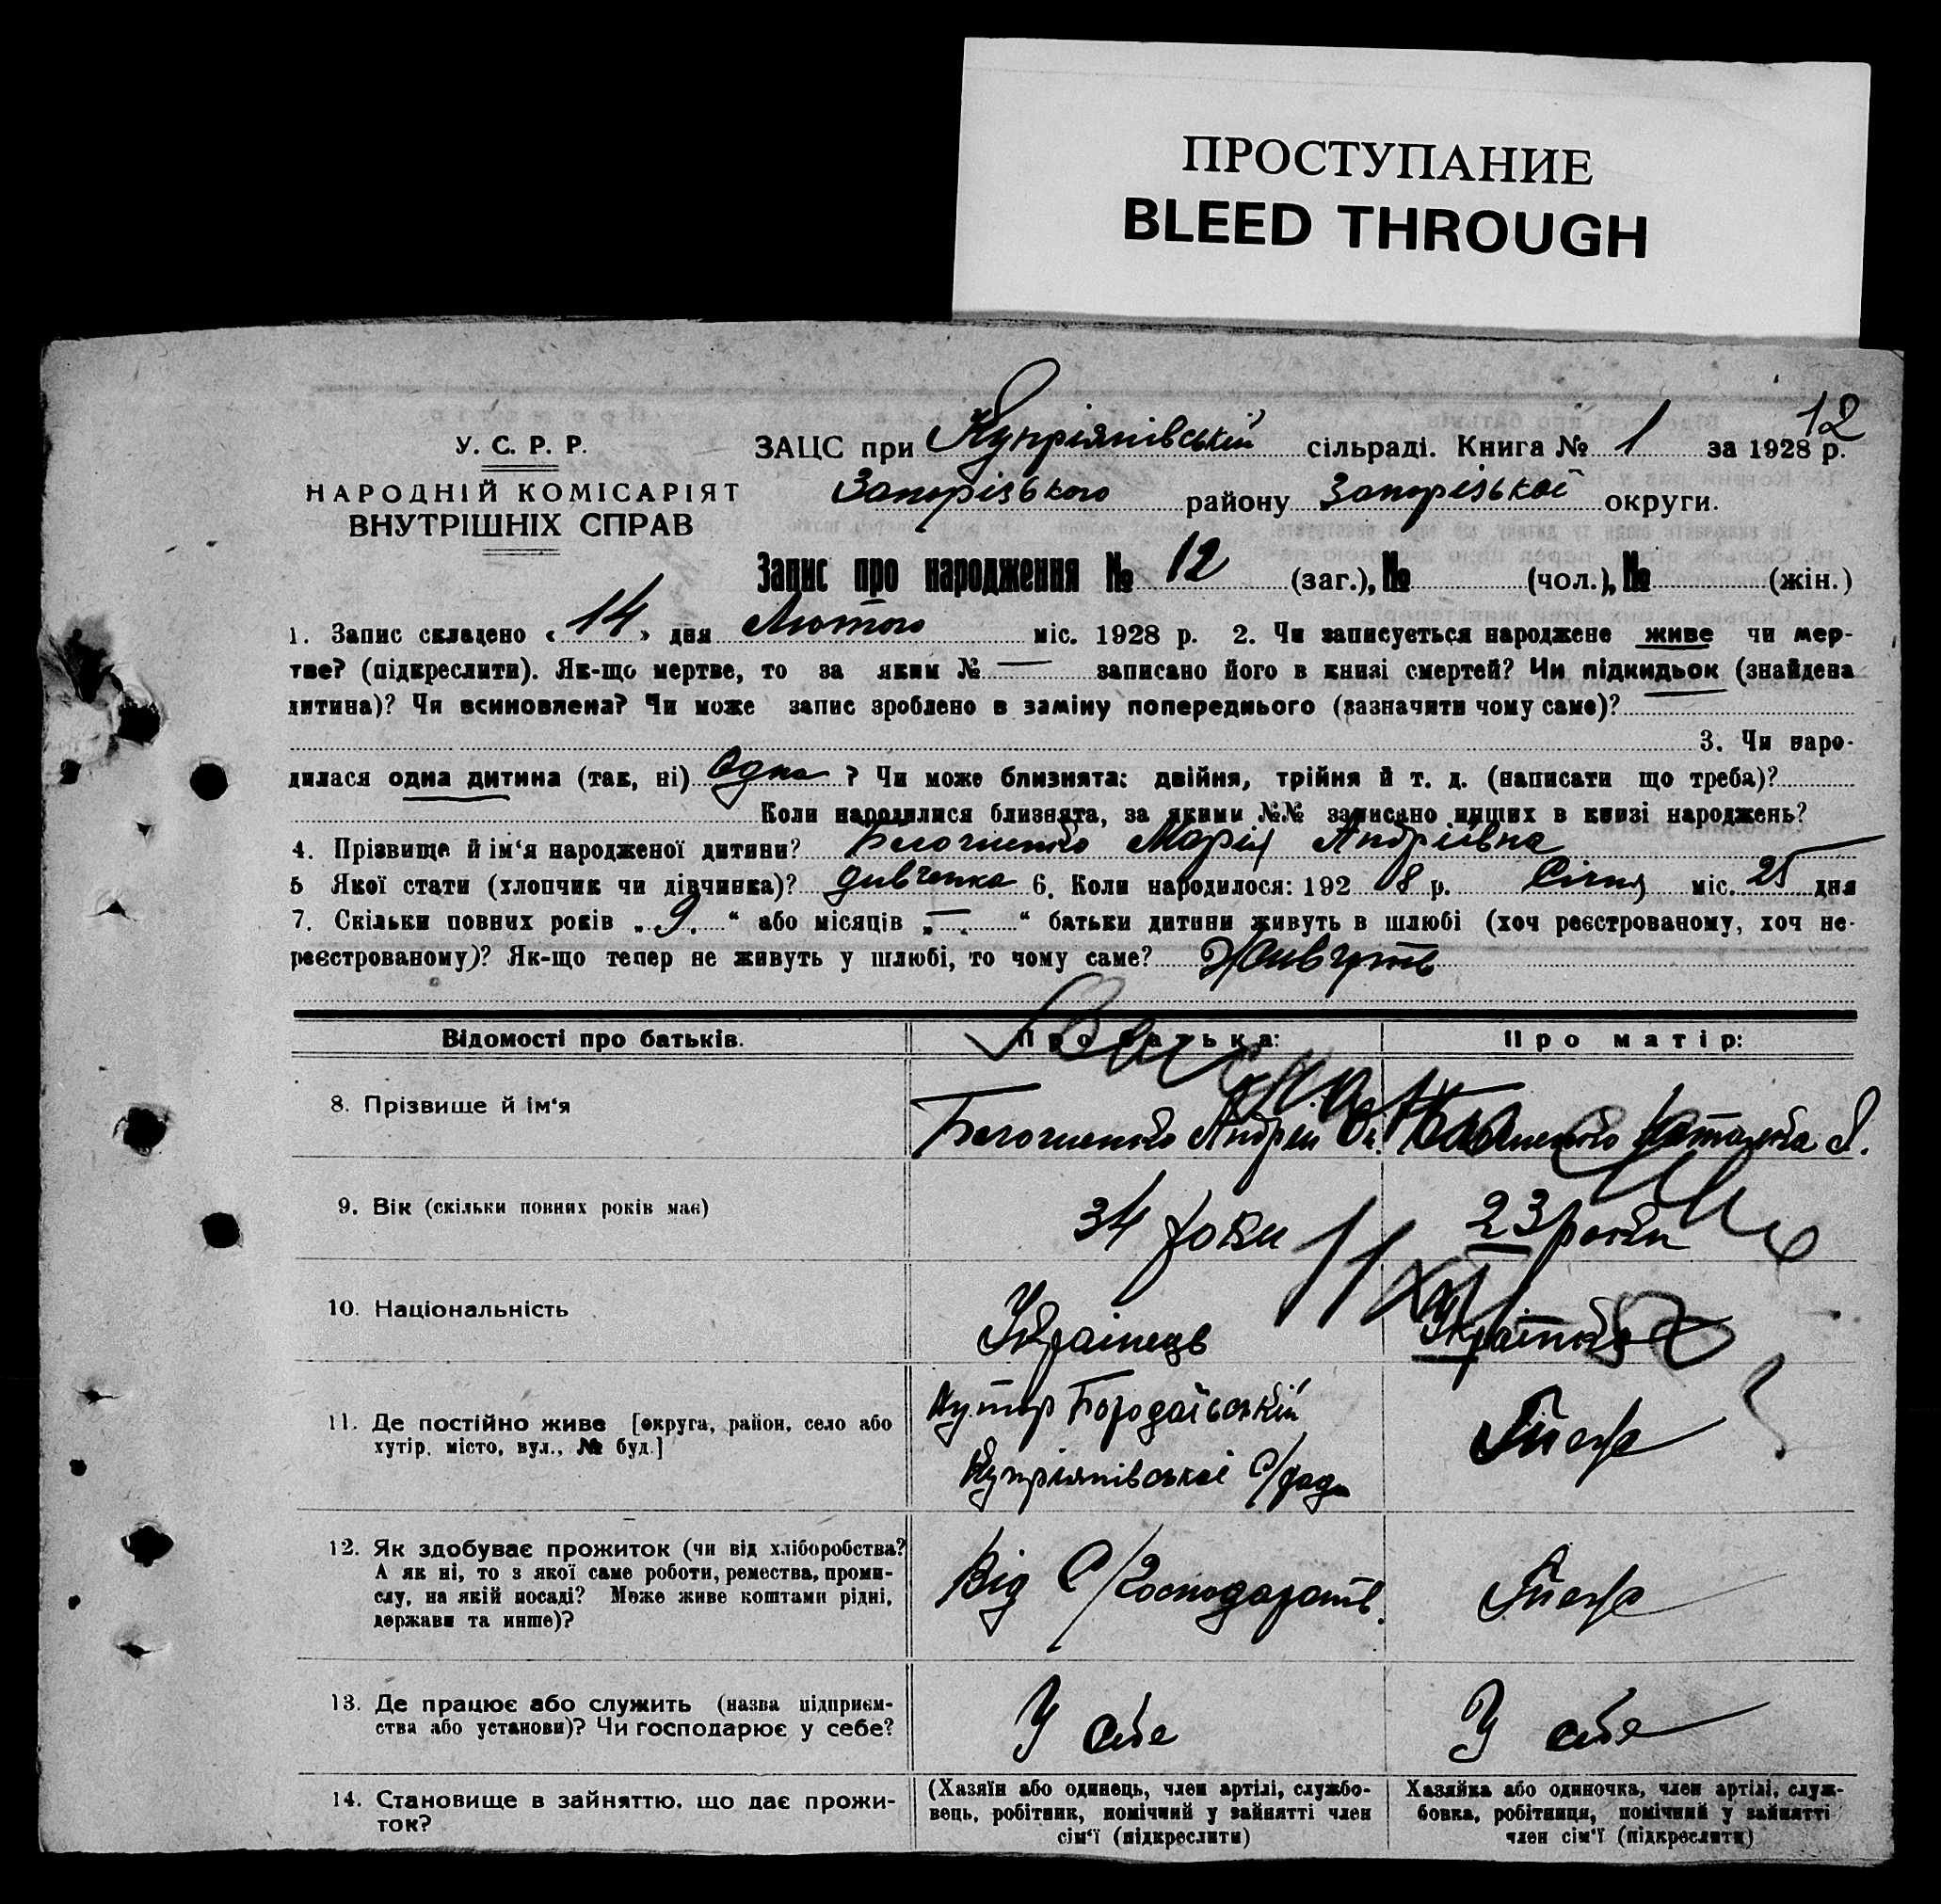 ПРОСТУПАНИЕ
BLEED THROUGH
12
У. С. Р. Р.
НАРОДНІЙ КОМІСАРІЯТ
ВНУТРІШНІХ СПРАВ
ЗАЦС при Купріянівській сільраді. Книга № 1 за 1928 р.
Запорізького району Запорізької округи.
Запис про народження № 12 (заг.), № (чол.), № (жін.)
1. Запис складено « 14 » дня Лютого міс. 1928 р. 2. Чи записується народжене живе чи мер-
тве? (підкреслити). Як-що мертве, то за яким № — записано його в книзі смертей? Чи підкидьок (знайдена
дитина)? Чи всиновлена? Чи може запис зроблено в заміну попереднього (зазначити чому саме)? —
3. Чи наро-
дилася одна дитина (так, ні) Одна ? Чи може близнята: двійня, трійня й т. д. (написати що треба)?
Коли народилися близнята, за якими №№ записано инших в книзі народжень?
4. Прізвище й ім‘я народженої дитини? Марія Андріївна
5 Якої стати (хлопчик чи дівчинка)? дивчинка 6. Коли народилося: 192 8 р. Січня міс. 25 дня
7. Скільки повних років „ 9. “ або місяців „ — “ батьки дитини живуть в шлюбі (хоч реєстрованому, хоч не-
реєстрованому)? Як-що тепер не живуть у шлюбі, то чому саме? Живуть
Відомості про батьків.
Про батька:
Про матір:
8. Прізвище й ім‘я
Андрій
9. Вік (скільки повних років має)
34 роки
23 роки
10. Національність
Українець
Українка
11. Де постійно живе [округа, район, село або
хутір, місто, вул., № буд.]
Хутір Бородаївський
Купріянівської С/ради
Теж
12. Як здобуває прожиток (чи від хліборобства?
А як ні, то з якої саме роботи, ремества, проми-
слу, на якій посаді? Може живе коштами рідні,
держави та инше)?
Від С/Господарств.
Теж
13. Де працює або служить (назва підприєм-
ства або установи)? Чи господарює у себе?
У себе
У себе
14. Становище в зайняттю, що дає прожи-
ток?
(Хазяїн або одинець, член артілі, службо-
вець, робітник, помічний у зайнятті член
сім‘ї (підкреслити)
Хазяйка або одиночка, член артілі, служ-
бовка, робітниця, помічний у зайнятті
член сім‘ї (підкреслити)